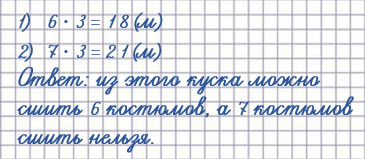 1) 6 · 3 = 18 (м)
2) 7 · 3 = 21 (м)
Ответ: из этого куска можно
сшить 6 костюмов, а 7 костюмов
сшить нельзя.